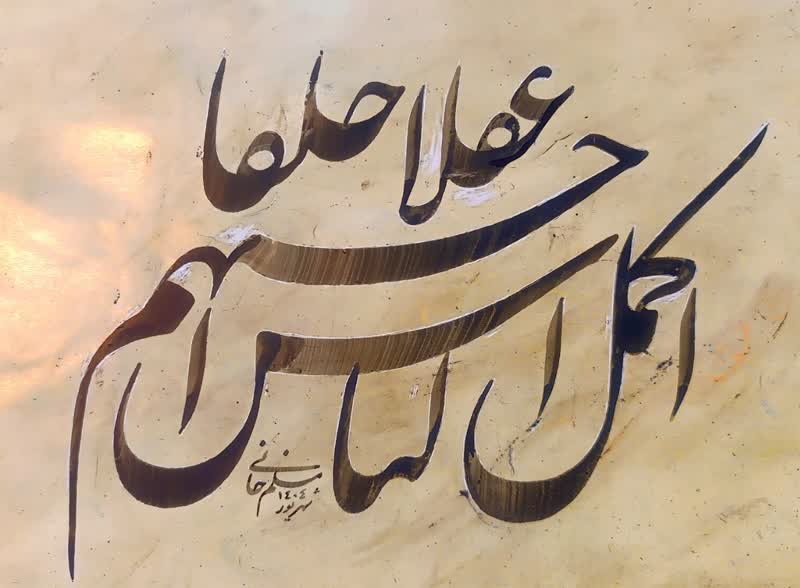 اکمل الناس عقلا احسنهم خلقا
مسلم خانی
۱۴۰۴
شهریور